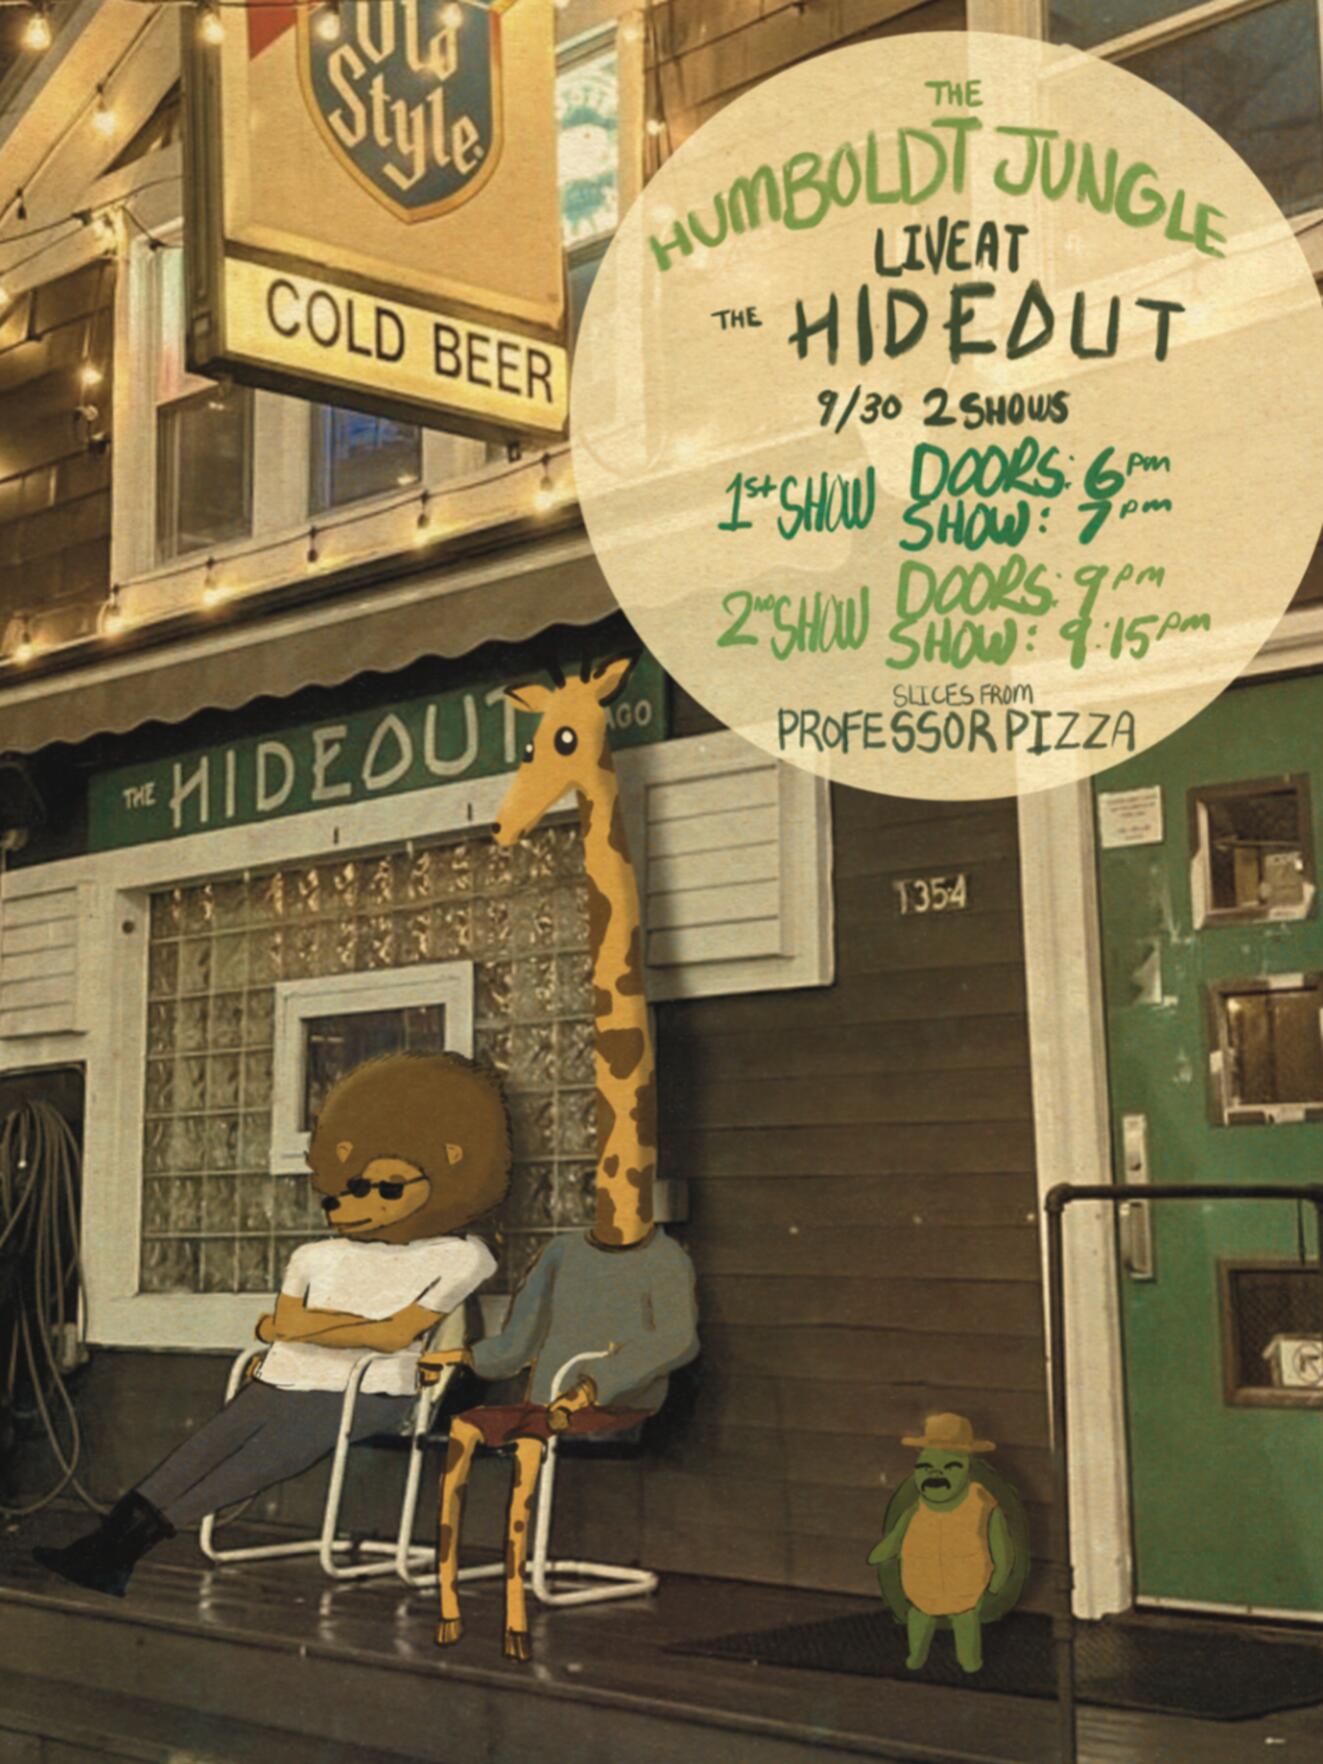 Old
Style
COLD BEER
THE
HUMBOLDT JUNGLE
LIVE AT
THE HIDEOUT
9/30 2 SHOWS
1st SHOW DOORS: 6pm
SHOW: 7pm
2ND SHOW DOORS: 9pm
SHOW: 9:15pm
SLICES FROM
PROFESSOR PIZZA
THE HIDEOUT AGO
1354